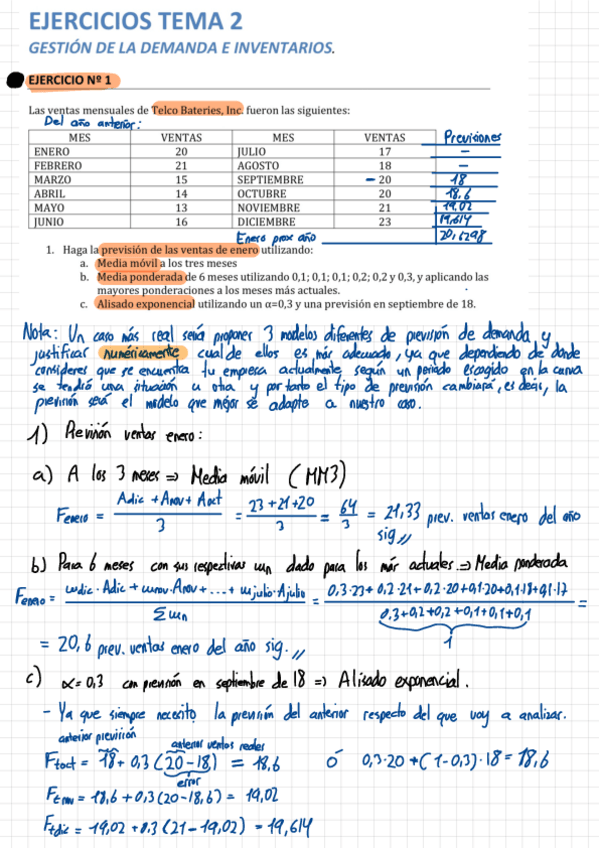 EJERCICIOS TEMA 2
GESTIÓN DE LA DEMANDA E INVENTARIOS.
EJERCICIO Nº 1
Las ventas mensuales de Telco Bateries, Inc. fueron las siguientes:
Del año anterior:
MES VENTAS MES VENTAS Previsiones
ENERO 20 JULIO 17 -
FEBRERO 21 AGOSTO 18 -
MARZO 15 SEPTIEMBRE - 20 18
ABRIL 14 OCTUBRE 20 18,6
MAYO 13 NOVIEMBRE 21 19,02
JUNIO 16 DICIEMBRE 23 19,614
Enero prox año 20,6298
1. Haga la previsión de las ventas de enero utilizando:
a. Media móvil a los tres meses
b. Media ponderada de 6 meses utilizando 0,1; 0,1; 0,1; 0,2; 0,2 y 0,3, y aplicando las
mayores ponderaciones a los meses más actuales.
c. Alisado exponencial utilizando un α=0,3 y una previsión en septiembre de 18.
Nota: Un caso más real sería proponer 3 modelos diferentes de previsión de demanda y
justificar numéricamente cual de ellos es más adecuado, ya que dependiendo de donde
consideres que se encuentra tu empresa actualmente según un periodo escogido en la curva
se tendrá una situación u otra y por tanto el tipo de previsión cambiará, es decir, la
previsión será el modelo que mejor se adapte a nuestro caso.
1) Previsión ventas enero:
a) A los 3 meses => Media móvil (MM3)
Fenero = Adic + Anov + Aoct / 3 = 23+21+20 / 3 = 64 / 3 = 21,33 prev. ventas enero del año
sig //
b) Para 6 meses con sus respectivas wn dado para los más actuales => Media ponderada
Fenero = wdic · Adic + wnov · Anov + ... + wjulio · Ajulio / Σwn = 0,3·23 + 0,2·21 + 0,2·20 + 0,1·20 + 0,1·18 + 0,1·17 / 0,3+0,2+0,2+0,1+0,1+0,1 =
1
= 20,6 prev. ventas enero del año sig. //
c) α = 0,3 con previsión en septiembre de 18 => Alisado exponencial.
- Ya que siempre necesito la previsión del anterior respecto del que voy a analizar.
anterior previsión anterior ventas reales
Ftoct = 18 + 0,3 (20-18) = 18,6 ó 0,3·20 + (1-0,3)·18 = 18,6
error
Ftnov = 18,6 + 0,3 (20-18,6) = 19,02
Ftdic = 19,02 + 0,3 (21-19,02) = 19,614